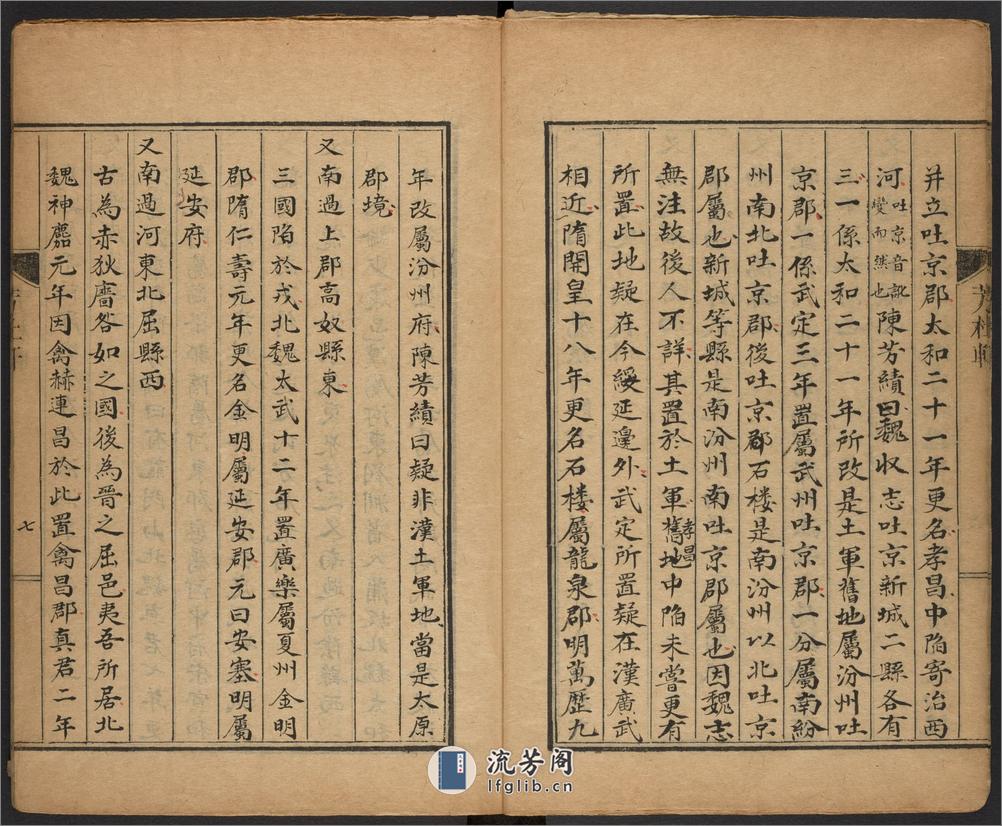 并立吐京郡太和二十一年更名孝昌中陷寄治西
河吐京音訛變而然也陳芳績曰魏收志吐京新城二縣各有
三一係太和二十一年所改是土軍舊地屬汾州吐
京郡一係武定三年置屬武州吐京郡一分屬南紛
州南北吐京郡後吐京郡石楼是南汾州以北吐京
郡屬也新城等縣是南汾州南吐京郡屬也因魏志
無注故後人不詳其置於土軍舊地孝昌中陷未嘗更有
所置此地疑在今綏延邊外武定所置疑在漢廣武
相近隋開皇十八年更名石楼屬龍泉郡明萬歷九
年改屬汾州府陳芳績曰疑非漢土軍地當是太原
郡境
又南過上郡高奴縣東
三國陷於戎北魏太武十二年置廣樂屬夏州金明
郡隋仁壽元年更名金明屬延安郡元曰安塞明屬
延安府
又南過河東北屈縣西
古為赤狄廧咎如之國後為晉之屈邑夷吾所居北
魏神䴥元年因禽赫連昌於此置禽昌郡真君二年
七
流芳阁
lfglib.cn